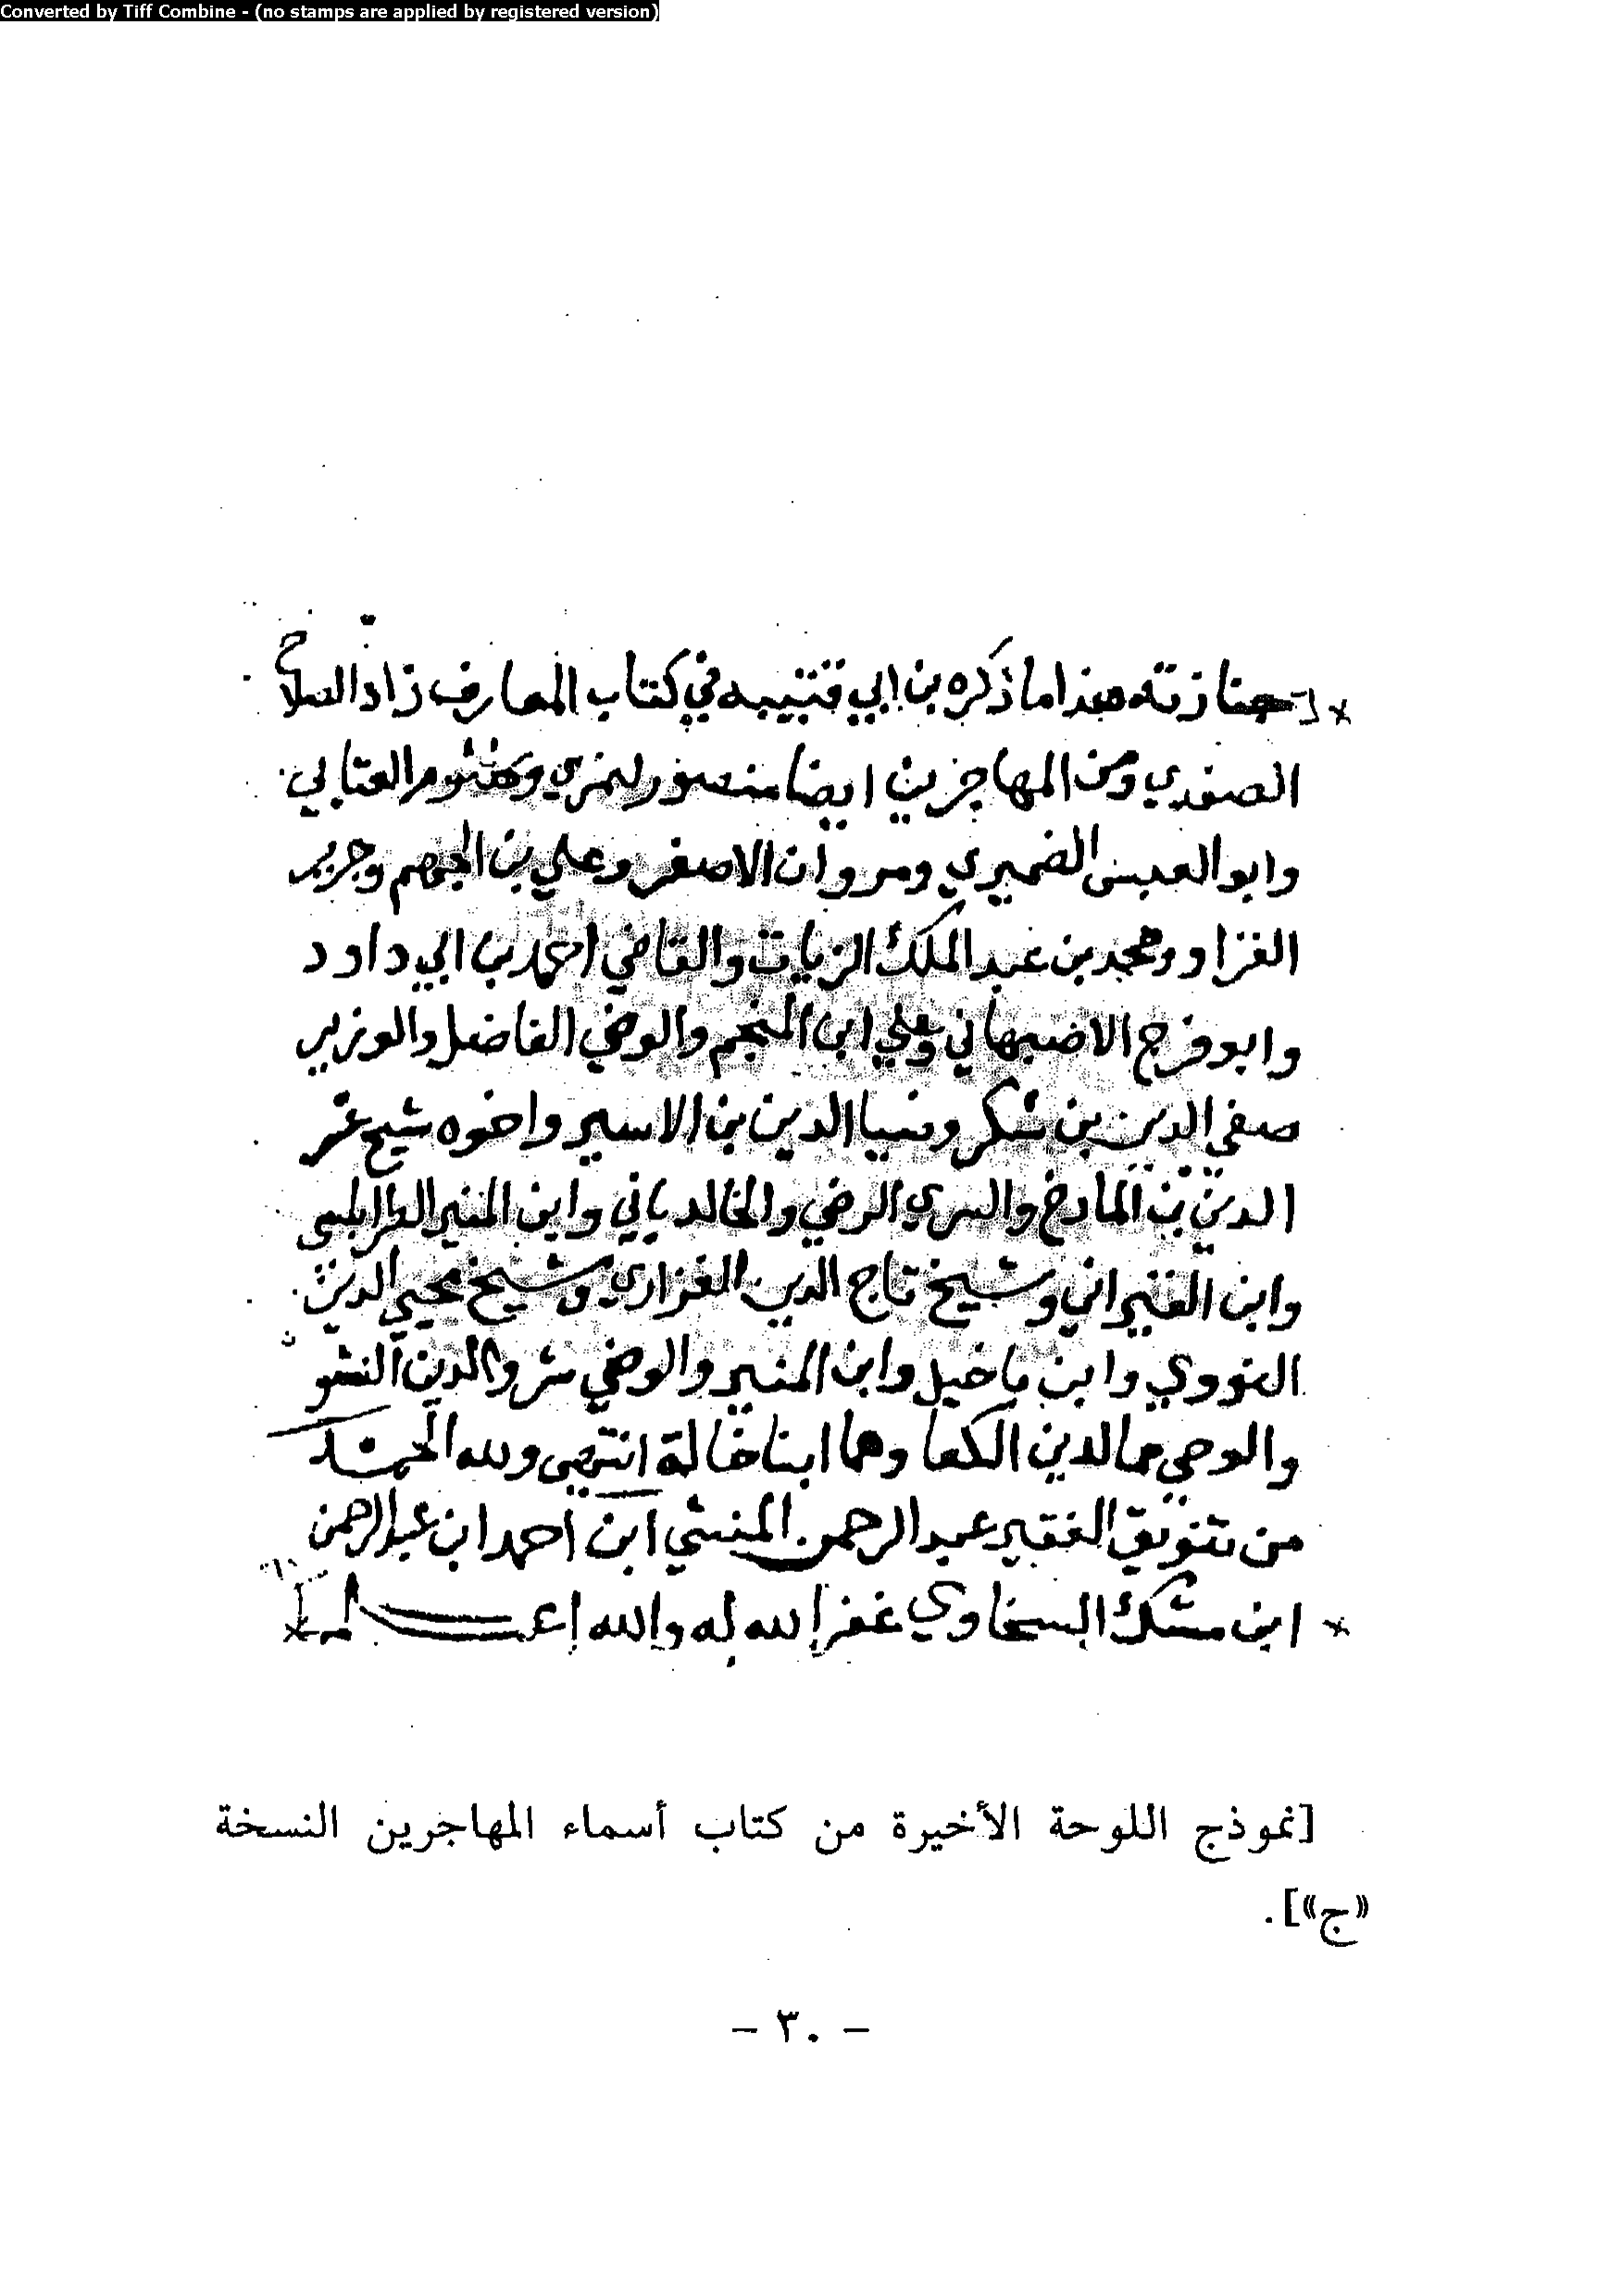 Converted by Tiff Combine - (no stamps are applied by registered version)
جنازته هذا ما ذكره بن ابي قتيبه في كتاب المعارف زاد الصلاح
الصفدي ومن المهاجرين ايضا منصور لنمري وكلثوم العتابي
وابو العبس الضميري ومروان الاصفر وعلي بن الجهم وجرير
الفزا ومحمد بن عبد الملك الزيات والقاضي احمد بن ابي داود
وابو فرج الاصبهاني وعلي ابن المنجم والوضي الفاضل والوزير
صفي الدين بن شكر وضيا الدين بن الاسير واخوه شيخ عز
الدين بن والسري الرضي والخالدياني وابن المنير الطرابلسي
وابن القيراني وشيخ تاج الدين الفزاري وشيخ محيي الدين
النووي وابن باخيل وابن المنير والوضي والدين النشو
والوحي جمالدين الكفا وهما ابنا خالة انتهى ولله الحمد
من تنويق الفقير عبد الرحمن المنشي ابن احمد ابن عبد الرحمن
ابن مسك السخاوي غفر الله له والله اعلم
[نموذج اللوحة الأخيرة من كتاب أسماء المهاجرين النسخة
«ج»].
– ٣٠ –